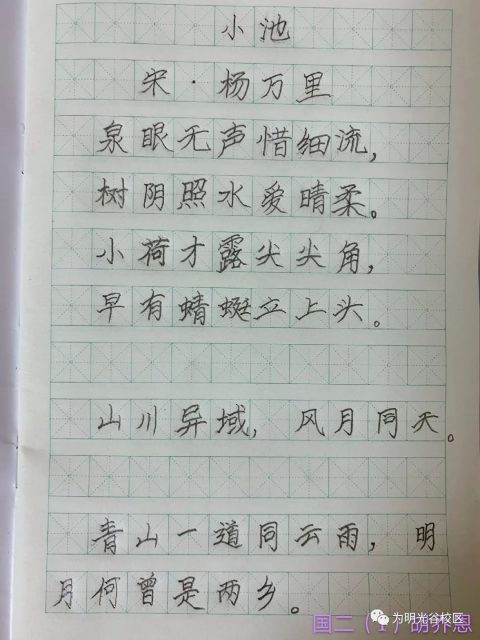 小池
宋·杨万里
泉眼无声惜细流,
树阴照水爱晴柔。
小荷才露尖尖角,
早有蜻蜓立上头。
山川异域,风月同天。
青山一道同云雨,明
月何曾是两乡。
为明光谷校区
国二（1）胡乔恩